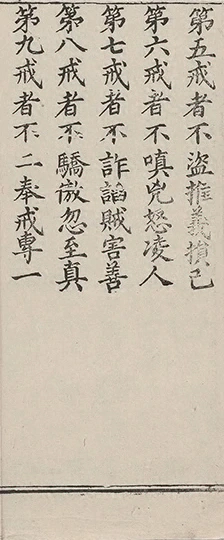 第五戒者不盜推義損己
第六戒者不嗔兇怒凌人
第七戒者不詐謟賊害善
第八戒者不驕傲忽至真
第九戒者不二奉戒專一